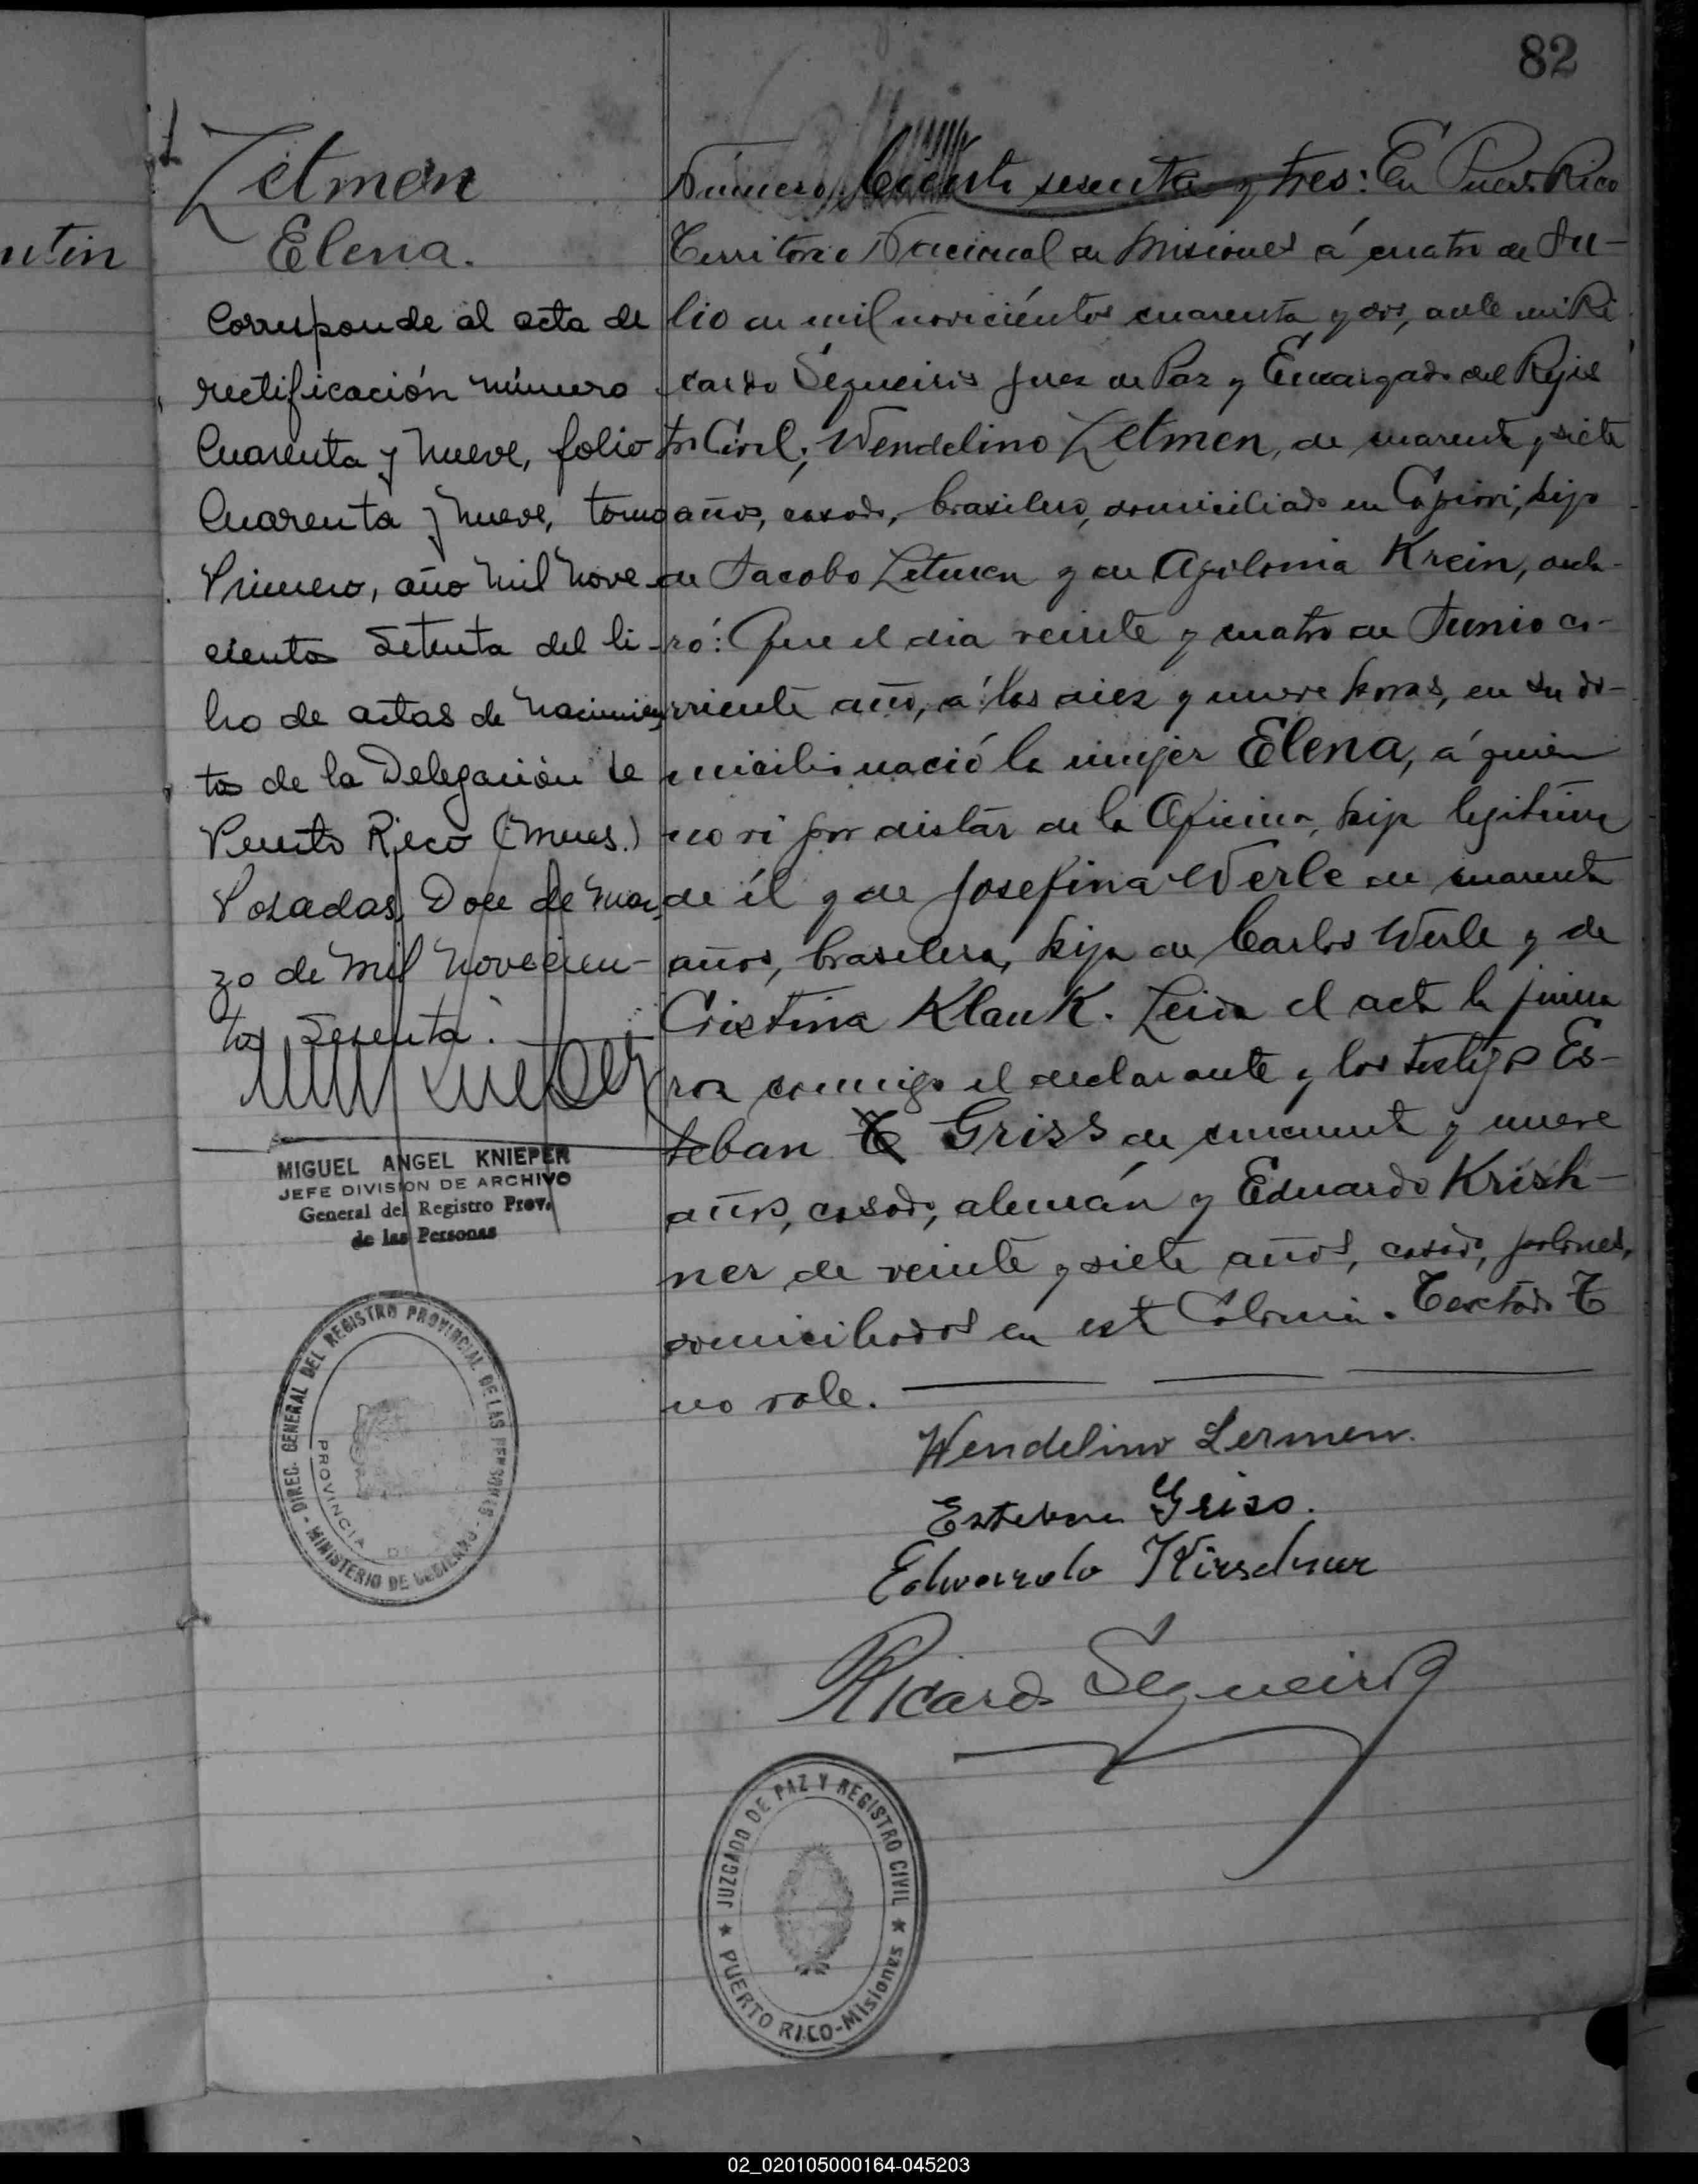 82
ntin
Zetmen
Elena.
Corresponde al acta de
rectificación número
Cuarenta y nueve, folio
Cuarenta y nueve, tomo
Primero, año mil nove-
cientos Setenta del li-
bro de actas de nacimien
tos de la Delegación de
Puerto Rico (Mnes.)
Posadas, Doce de Mar-
zo de mil novecien-
tos Setenta.
MIGUEL ANGEL KNIEPER
JEFE DIVISION DE ARCHIVO
General del Registro Prov.
de las Personas
DIREC. GENERAL DEL REGISTRO PROVINCIAL DE LAS PERSONAS - MINISTERIO DE GOBIERNO -
PROVINCIA DE
Número Ciento sesenta y tres: En Puerto Rico
Territorio Nacional de Misiones á cuatro de Ju-
lio de mil novecientos cuarenta y dos, ante mi Ri
cardo Sequeira Juez de Paz y Encargado del Rejis
tro Civil; Wendelino Zetmen, de cuarenta y siete
años, casado, brasilero, domiciliado en Capiovi, hijo
de Jacobo Zetmen y de Apolonia Krein, decla-
ró: Que el dia veinte y cuatro de Junio co-
rriente año, a las diez y nueve horas, en su do-
micilio nació la mujer Elena, á quien
no vi por distar de la Oficina, hija legitima
de él y de Josefina Werle de cuarenta
años, brasilera, hija de Carlos Werle y de
Cristina Klauk. Leida el acta la firma
ron conmigo el declarante y los testigos Es-
teban T Griss de cincuenta y nueve
años, casado, alemán y Eduardo Krish-
ner de veinte y siete años, casado, polones,
domiciliados en esta Colonia. Testado T
no vale.
Wendelino Lermen.
Esteban Griss.
Edwardo Kirschner
Ricardo Sequeira
JUZGADO DE PAZ Y REGISTRO CIVIL
PUERTO RICO-Misiones
02_020105000164-045203